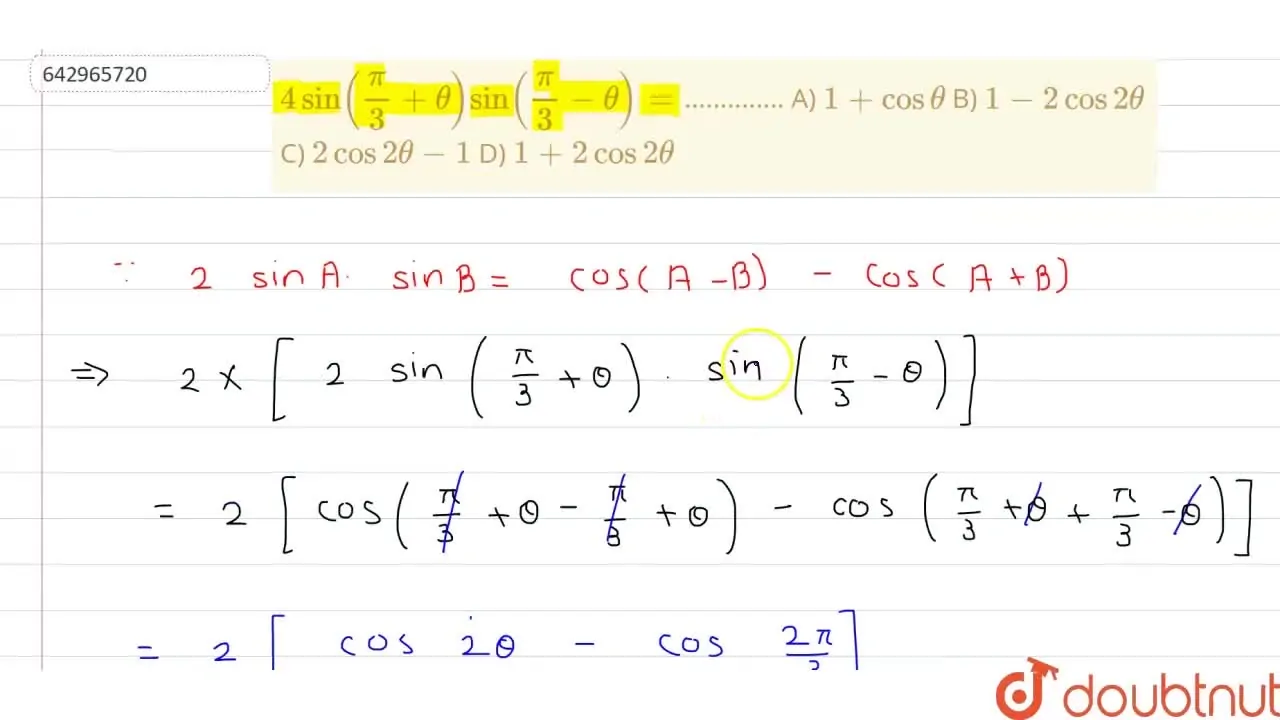 642965720
4 sin(π/3 + θ) sin(π/3 − θ) = .............. A) 1 + cos θ B) 1 − 2 cos 2θ
C) 2 cos 2θ − 1 D) 1 + 2 cos 2θ
∵ 2 sin A · sin B = cos(A − B) − cos(A + B)
⇒ 2 × [2 sin(π/3 + θ) · sin(π/3 − θ)]
= 2 [cos(π/3 + θ − π/3 + θ) − cos(π/3 + θ + π/3 − θ)]
= 2 [cos 2θ − cos 2π/3]
doubtnut